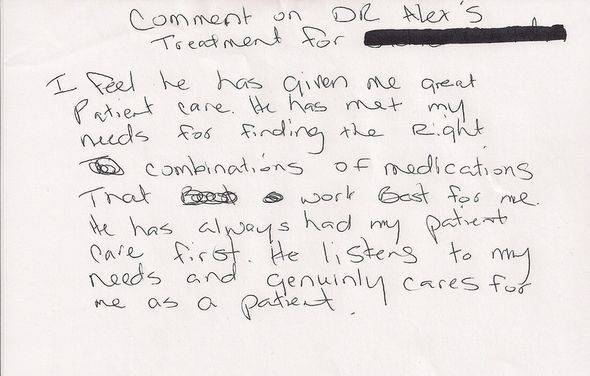 Comment on DR Alex's
Treatment for
I Feel he has given me great
Patient care. He has met my
needs for finding the Right
combinations of medications
That work Best for me.
He has always had my patient
care first. He listens to my
needs and genuinly cares for
me as a patient.